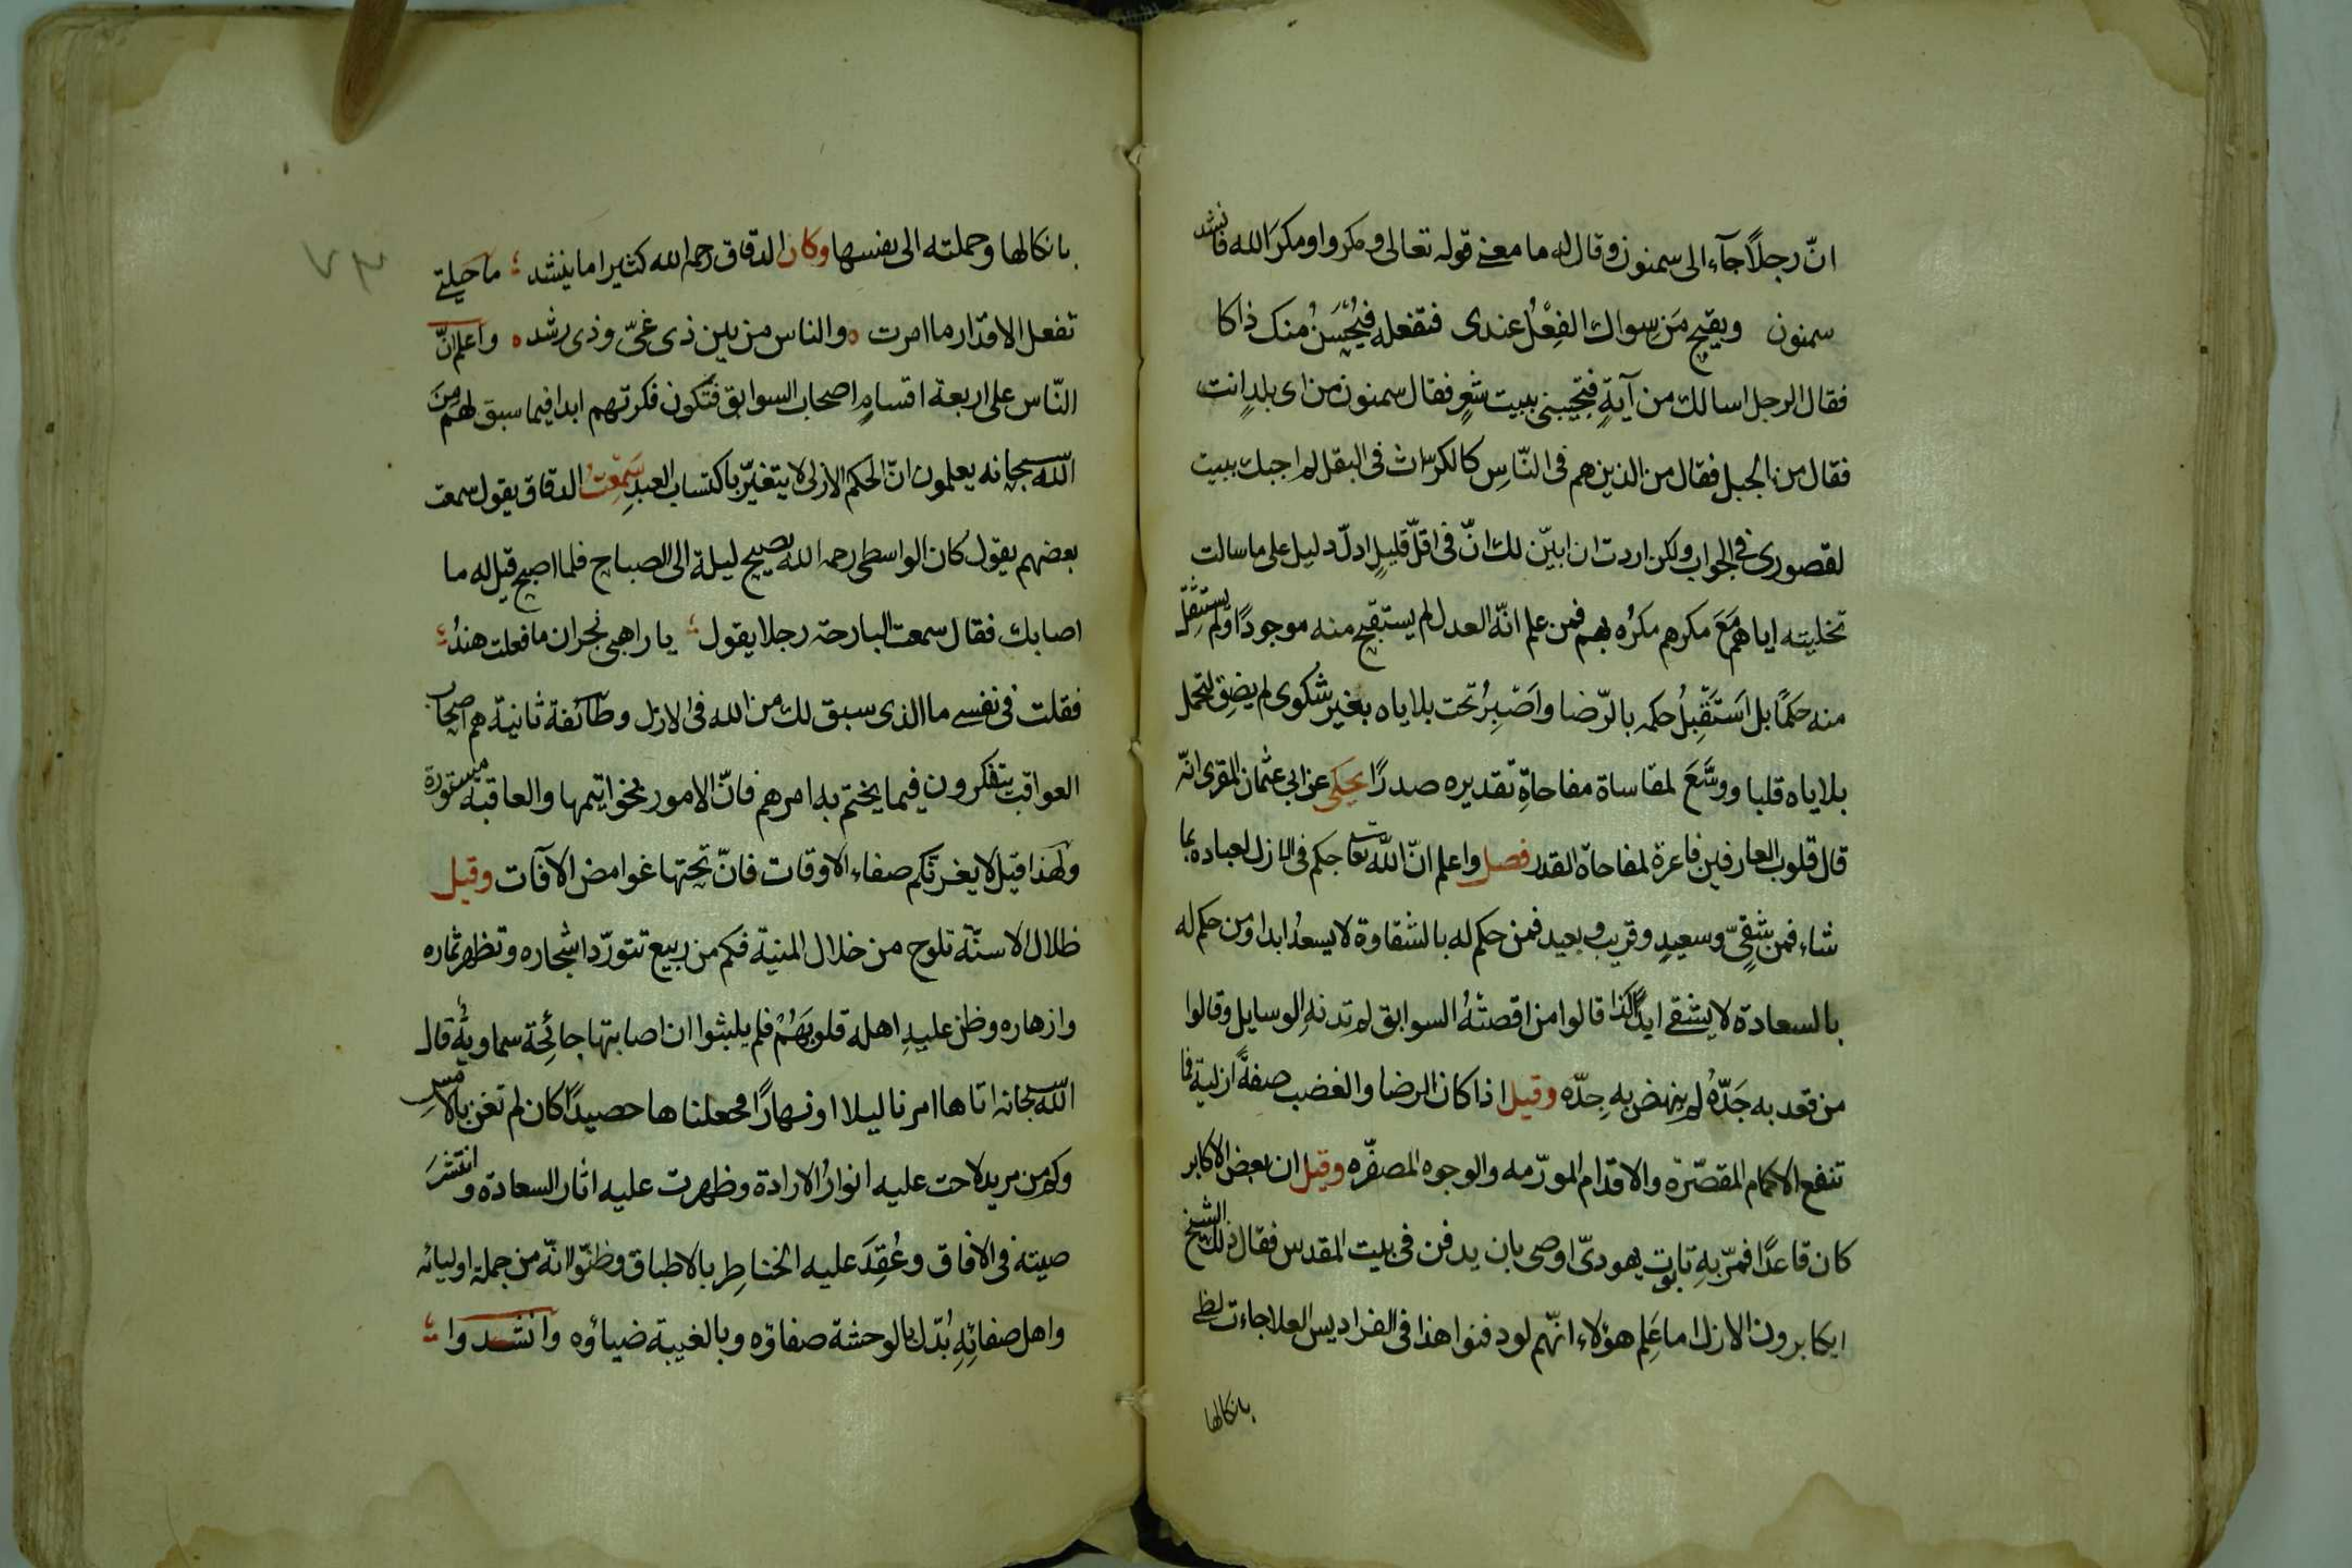 انّ رجلاً جآء الى سمنون وقال له ما معنى قوله تعالى ومكروا ومكرَ الله فانشد
سمنون ويقبح مَن سواك الفِعْلُ عندى فتفعله فيُحْسَنُ منك ذاكا
فقال الرجل اسالك من آيةٍ فتجيبنى ببيت شعرٍ فقال سمنون من اى بلدٍ انت
فقال من الجبل فقال من الذين هم فى النّاسِ كالكرّاث فى البقل لم اجبك ببيت
لقصورى فى الجواب ولكن اردت ان ابيّن لك انّ فى اقلّ قليلٍ ادلّ دليل على ما سالت
تخليته اياهم مَعَ مكرهم مكرُه بهم فمن علم انّه العدل لم يستقبح منه موجودًا ولم يستثقل
منه حكمًا بل اَستَقْبِلُ حكمه بالرّضا واَصْبِرُ تحت بلاياه بغير شكوى لم يضق لتحمل
بلاياه قلبا ووسَّعَ لمقاساة مفاجاةِ تقديره صدرًا يحكى عن ابى عثمان المقرى انّه
قال قلوب العارفين فاغرة لمفاجاة القدر فصل واعلم انّ الله تعا حكم فى الازل لعباده بما
شاء فمن شقىٍّ وسعيدٍ وقريب وبعيد فمن حكم له بالشقاوة لا يسعدُ ابدا ومن حكم له
بالسعادة لا يشقى ابدًا كذا قالوا من اقصتْهُ السوابق لم تدنهِ الوسايل وقالوا
من قعد به جَدّهُ لم ينهض به جِدّه وقيل اذا كان الرضا والغضب صفةً ازلية فما
تنفع الاكمام المقصّرة والاقدام المورّمه والوجوه المصفّره وقيل ان بعض الاكابر
كان قاعدًا فمرّ بهِ تابوت يهودىّ اوصى بان يدفن فى بيت المقدس فقال ذلك الشيخ
ايكابرون الازل اما عَلِم هؤلاء انّهم لو دفنوا هذا فى الفراديس العلا جاءت لظى
بانكالها
بانكالها وحملته الى نفسها وكان الدقاق رحمه الله كثيرا ما ينشد ما حيلتى
تفعل الاقدار ما امرت والناس من بين ذى غىّ وذى رشد واعلم انّ
النّاس على اربعة اقسامٍ اصحاب السوابق فتكون فكرتهم ابدا فيما سبق لهم مِنَ
الله سبحانه يعلمون انّ الحكم الازلى لا يتغيّر باكتساب العبدِ سَمِعْتُ الدقاق يقول سمعت
بعضهم يقول كان الواسطى رحمه الله يصيح ليلة الى الصباح فلما اصبح قيل له ما
اصابك فقال سمعت البارحة رجلا يقول يا راهبى نجران ما فعلت هندُ
فقلت فى نفسى ما الذى سبق لك من الله فى الازل وطآئفة ثانية هم اصحاب
العواقب يتفكرون فيما يختم به امرهم فانّ الامور بخواتيمها والعاقبة مستورة
ولهذا قيل لا يغرنّكم صفاء الاوقات فانّ تحتها غوامض الآفات وقيل
ظلال الاسنّة تلوح من خلال المنية فكم من ربيع تتورّد اشجاره وتظهر ثماره
وازهاره وظن عليهِ اهله قلوبَهُمْ فلم يلبثوا ان اصابتها جائحة سماوية قال
الله سبحانه اتاها امرنا ليلا او نهارًا فجعلناها حصيدًا كان لم تغن بالامس
وكم من مريد لاحت عليه انوارُ الارادة وظهرت عليه اثار السعادة وانتشرَ
صيته فى الافاق وعُقِدَ عليه الخناطِر بالاطباق وظنّوا انّه من جملة اوليائه
واهل صفائِهِ بُدّل بالوحشة صفاؤه وبالغيبة ضياؤه وانشدوا